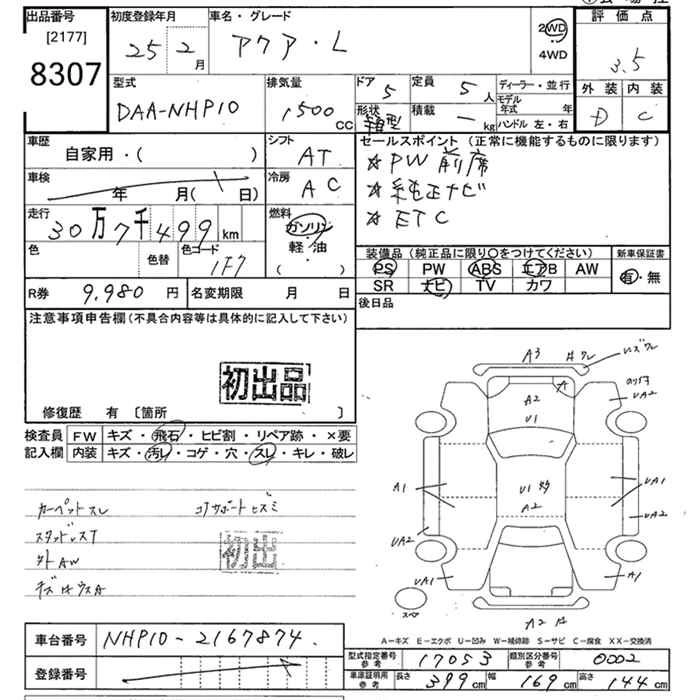 出品番号 初度登録年月 車名・グレード 評価点
[2177]
8307
25年 2月 アクア・L 2WD 4WD 3.5
型式 排気量 ドア 定員 ディーラー・並行 外装 内装
DAA-NHP10 1500CC 5 5人 モデル年式 年 D C
形状 積載 kg ハンドル 左・右
箱型 ー
車歴 シフト セールスポイント(正常に機能するものに限ります)
自家用・( ) AT ☆PW前席
車検 年 月( 日) 冷房 AC ☆純正ナビ
走行 燃料 ☆ETC
30万7千499km ガソリン
軽・油
( )
色 色替 色コード 1F7
装備品(純正品に限り○をつけてください) 新車保証書
PS PW ABS エアB AW 有・無
SR ナビ TV カワ
R券 9,980円 名変期限 月 日 後日品
注意事項申告欄(不具合内容等は具体的に記入して下さい)
初出品
修復歴 有 〔箇所 〕
検査員 FW キズ・飛石・ヒビ割・リペア跡・×要
記入欄 内装 キズ・汚レ・コゲ・穴・スレ・キレ・破レ
カーペットスレ コアサポートヒズミ
スタッドレスT
外AW
A3
A
UA2
A2
U1
A1
UA1
U1
A2
UA2
UA2
UA1
A1
スペア
A2
A-キズ E-エクボ U-凹み W-補修跡 S-サビ C-腐食 XX-交換済
車台番号 NHP10-2167874.
登録番号
型式指定番号参考 17053 類別区分番号参考 0002
車庫証明用参考 長さ 399cm 幅 169cm 高さ 144cm